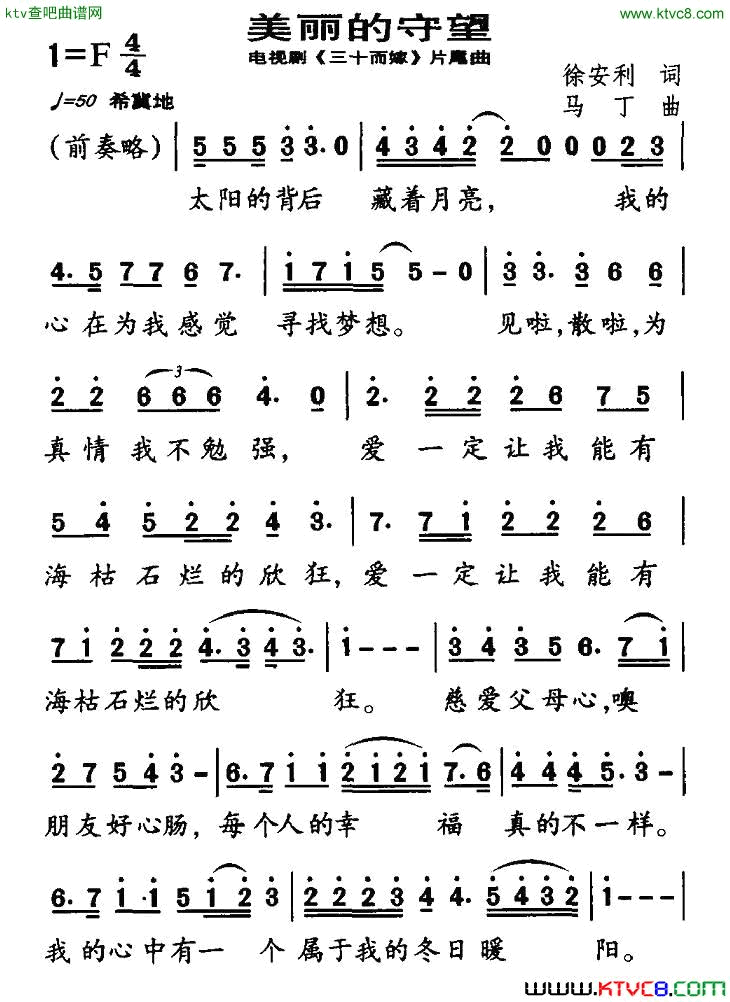 ktv查吧曲谱网
www.ktvc8.com
美丽的守望
1=F 4/4
电视剧《三十而嫁》片尾曲
徐安利 词
♩=50 希冀地
马丁 曲
(前奏略) | 5 5 5 3 3. 0 | 4 3 4 2 2 0 0 0 2 3 |
太阳的背后 藏着月亮, 我的
4. 5 7 7 6 7. | 1 7 1 5 5 - 0 | 3 3. 3 6 6
心在为我感觉 寻找梦想。 见啦,散啦,为
2 2 6 6 6 4. 0 | 2. 2 2 2 6 7 5
真情我不勉强, 爱一定让我能有
5 4 5 2 2 4 3. | 7. 7 1 2 2 2 6
海枯石烂的欣狂,爱一定让我能有
7 1 2 2 2 4. 3 4 3. | 1 - - - | 3 4 3 5 6. 7 1
海枯石烂的欣 狂。 慈爱父母心,噢
2 7 5 4 3 - | 6. 7 1 1 2 1 2 1 7. 6 | 4 4 4 5. 3 -
朋友好心肠, 每个人的幸 福 真的不一样。
6. 7 1 · 1 5 1 2 3 | 2 2 2 3 4 4. 5 4 3 2 | 1 - - -
我的心中有一 个属于我的冬日暖 阳。
www.KTVC8.com